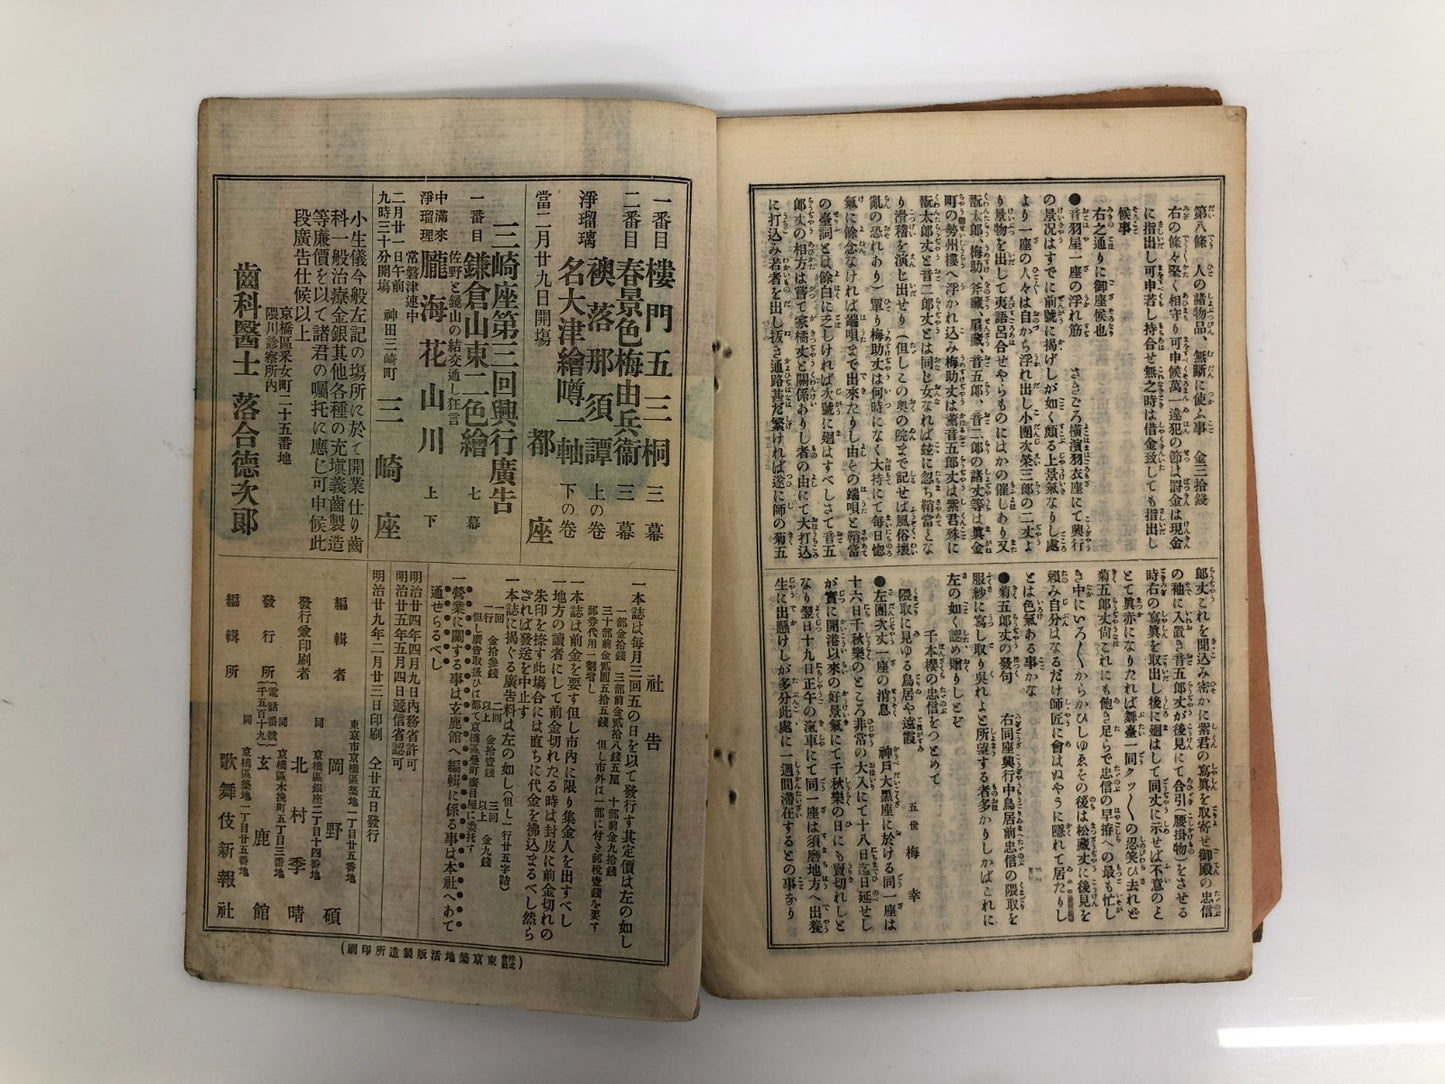 第八條　人の諸物品、無斷に使ふ事　金三拾錢
右の條々堅く相守り可申候萬一違犯の節は罸金は現金
に指出し可申若し持合せ無之時は借金致しても指出し
候事
右之通りに御座候也
●音羽屋一座の浮れ筋　さきごろ橫濱羽衣座にて興行
の景况はすでに前號に揭げしが如く頗る上景氣なりし處
より一座の人々は自から浮れ出し小團次榮三郎の二丈よ
り景物を出して夷語呂合せやらものにはかの催しあり又
町の勢州樓へ浮かれ込み梅助丈は薰音五郎丈は紫君殊に
り滑稽を演じ出せり（但しこの奧の院まで記せば風俗壞
亂の恐れあり）單り梅助丈は何時になく大持にて每日惚
氣に餘念なければ端唄まで出來たりし由その端唄と鞘當
の臺詞とは餘白に乏しければ次號に廻はすべしさて音五
郎丈の相方は嘗て家橘丈と關係ありし者の由にて大打込
に打込み若者を出し拔き通路甚だ繁ければ遂に師の菊五
郎丈これを聞込み密かに紫君の寫眞を取寄せ御殿の忠信
の釉に入置き音五郎丈が後見にて合引（腰掛物）をさせる
時右の寫眞を取出し後に廻はして同丈に示せば不意のと
とて眞赤になりたれば舞臺一同クッ〱の忍笑ひ去れど
菊五郎丈尙これにも飽き足らで忠信の早拵への最も忙し
き中にいろ〱からかひしゆゑその後は松藏丈に後見を
賴み自分はなるだけ師匠に會はぬやうに隱れて居たりし
とは色氣ある事かな
●菊五郎丈の發句　右同座興行中鳥居前忠信の隈取を
服紗に寫し取り吳れよと所望する者多かりしかばこれに
左の如く認め贈りしとぞ
千本櫻の忠信をつとめて
隈取に見ゆる鳥居や遠霞　五世　梅幸
●左團次丈一座の消息　神戸大黑座に於ける同一座は
十六日千秋樂のところ非常の大入にて十八日迄日延せし
が實に開港以來の好景氣にて千秋樂の日にも賣切れしと
なり翌日十九日正午の滊車にて同一座は須磨地方へ出養
生に出懸けしが多分此處に一週間滯在するとの事なり
一番目　樓門五三桐　三幕
二番目　春景色梅由兵衞　三幕
淨瑠璃　襖落那須譚　上の卷
名大津繪噂一軸　下の卷
當二月廿九日開塲　都座
三崎座第三回興行廣告
一番目　鎌倉山東二色繪　七幕
中滿來　佐野と鏡山の結交通し狂言
淨瑠理　朧海花山川　上下
常磐津連中
二月廿一日午前
九時三十分開塲　神田三崎町　三崎座
小生儀今般左記の塲所に於て開業仕り齒
科一般治療金銀其他各種の充塡義齒製造
等廉價を以て諸君の囑托に應じ可申候此
段廣告仕候以上
京橋區釆女町二十五番地
隈川診察所內
齒科醫士　落合德次郞
社告
一本誌は每月三回五の日を以て發行す其定價は左の如し
一部金拾錢　三部前金貳拾八錢五厘　十部前金九拾錢
三十部前金貳圓五拾五錢　但し市外は一部に付き郵稅壹錢を要す
郵券代用一割增し
一本誌は前金を要す但し市內に限り集金人を出すべし
一地方の讀者にして前金切れたる時は封皮に前金切れの
朱印を捺す此塲合には直ちに代金を拂込まるべし然ら
ざれば發送を中止す
一本誌に揭ぐる廣告料は左の如し（但し一行廿五字詰）
一回　金拾參錢　二回以上　金拾壹錢　三回以上　金九錢
一行
一營業に關する事は玄鹿館へ編輯に係る事は本社へあて
通せらるべし
明治廿四年四月九日內務省許可
明治廿五年五月四日遞信省認可
明治廿九年二月廿三日印刷　仝廿五日發行
編輯者　東京市京橋區築地二丁目廿五番地　岡野碩
發行兼印刷者　同京橋區銀座二丁目十四番地　北村季晴
發行所（電話番號千五百十九）　同京橋區木挽町五丁目三番地　玄鹿館
編輯所　同京橋區築地二丁目廿五番地　歌舞伎新報社
（株式會社東京築地活版製造所印刷）